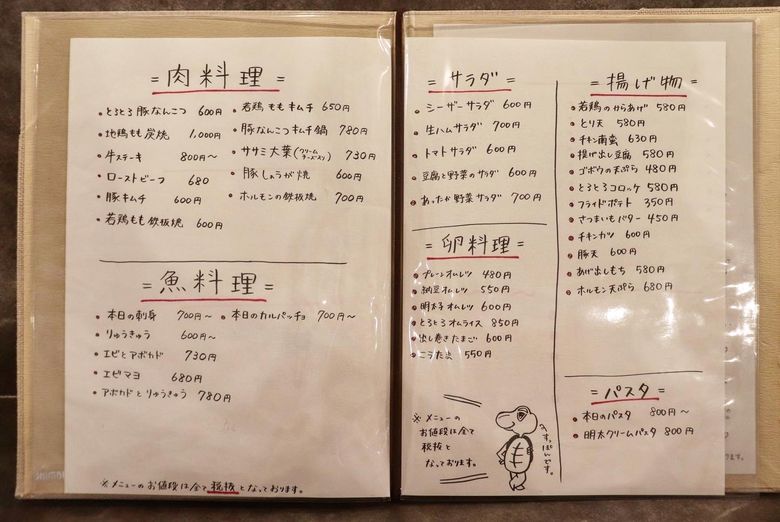 = 肉料理 =
• とろとろ豚なんこつ 600円
• 地鶏もも炭焼 1,000円
• 牛ステーキ 800円〜
• ローストビーフ 680
• 豚キムチ 600円
• 若鶏もも鉄板焼 600円
• 若鶏ももキムチ 650円
• 豚なんこつキムチ鍋 780円
• ササミ大葉(クリームチーズ入り) 730円
• 豚しょうが焼 600円
• ホルモンの鉄板焼 700円
= 魚料理 =
• 本日の刺身 700円〜
• りゅうきゅう 600円〜
• エビとアボカド 730円
• エビマヨ 680円
• アボカドとりゅうきゅう 780円
• 本日のカルパッチョ 700円〜
※メニューのお値段は全て税抜となっております。
= サラダ =
• シーザーサラダ 600円
• 生ハムサラダ 700円
• トマトサラダ 600円
• 豆腐と野菜のサラダ 600円
• あったか野菜サラダ 700円
= 卵料理 =
• プレーンオムレツ 480円
• 納豆オムレツ 550円
• 明太子オムレツ 600円
• とろとろオムライス 850円
• 出し巻きたまご 600円
• こうた巻 550円
※メニューの
お値段は全て
税抜と
なっております。
へすっぽんです。
= 揚げ物 =
• 若鶏のからあげ 580円
• とり天 580円
• チキン南蛮 630円
• 揚げ出し豆腐 580円
• ゴボウの天ぷら 480円
• とろとろコロッケ 580円
• フライドポテト 350円
• さつまいもバター 450円
• チキンカツ 600円
• 豚天 600円
• あげ出しもち 580円
• ホルモン天ぷら 680円
= パスタ =
• 本日のパスタ 800円〜
• 明太クリームパスタ 800円